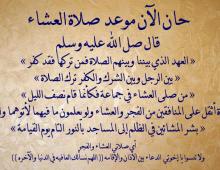 حان الآن موعد صلاة العشاء
قال صل الله عليه وسلم
« العهد الذي بيننا وبينهم الصلاة فمن تركها فقد كفر »
« بين الرجل وبين الشرك والكفر ترك الصلاة »
« من صلى العشاء في جماعة فكأنما قام نصف الليل »
أثقل على المنافقين من الفجر والعشاء ولو يعلمون ما فيهما لأتوهما ولو
« بشر المشائين في الظلم إلى المساجد بالنور التام يوم القيامة »
أي صلاتي العشاء والفجر
ولا تنسونا يا إخوتي الدعاء بين الأذان والإقامة (( اللهم نسألك العافيه في الدنيا والآخره ))